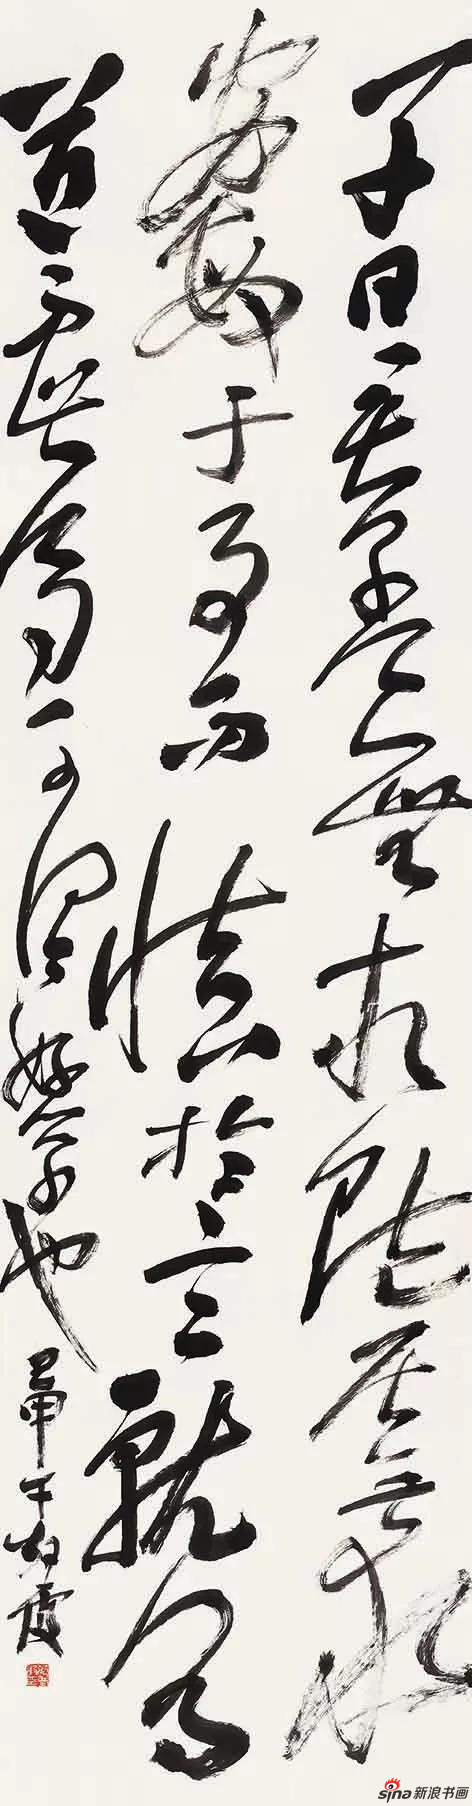 子曰君子食無求飽居無求
安敏于事而慎於言就有
道而正焉可謂好學也
已 甲午
sina新浪书画